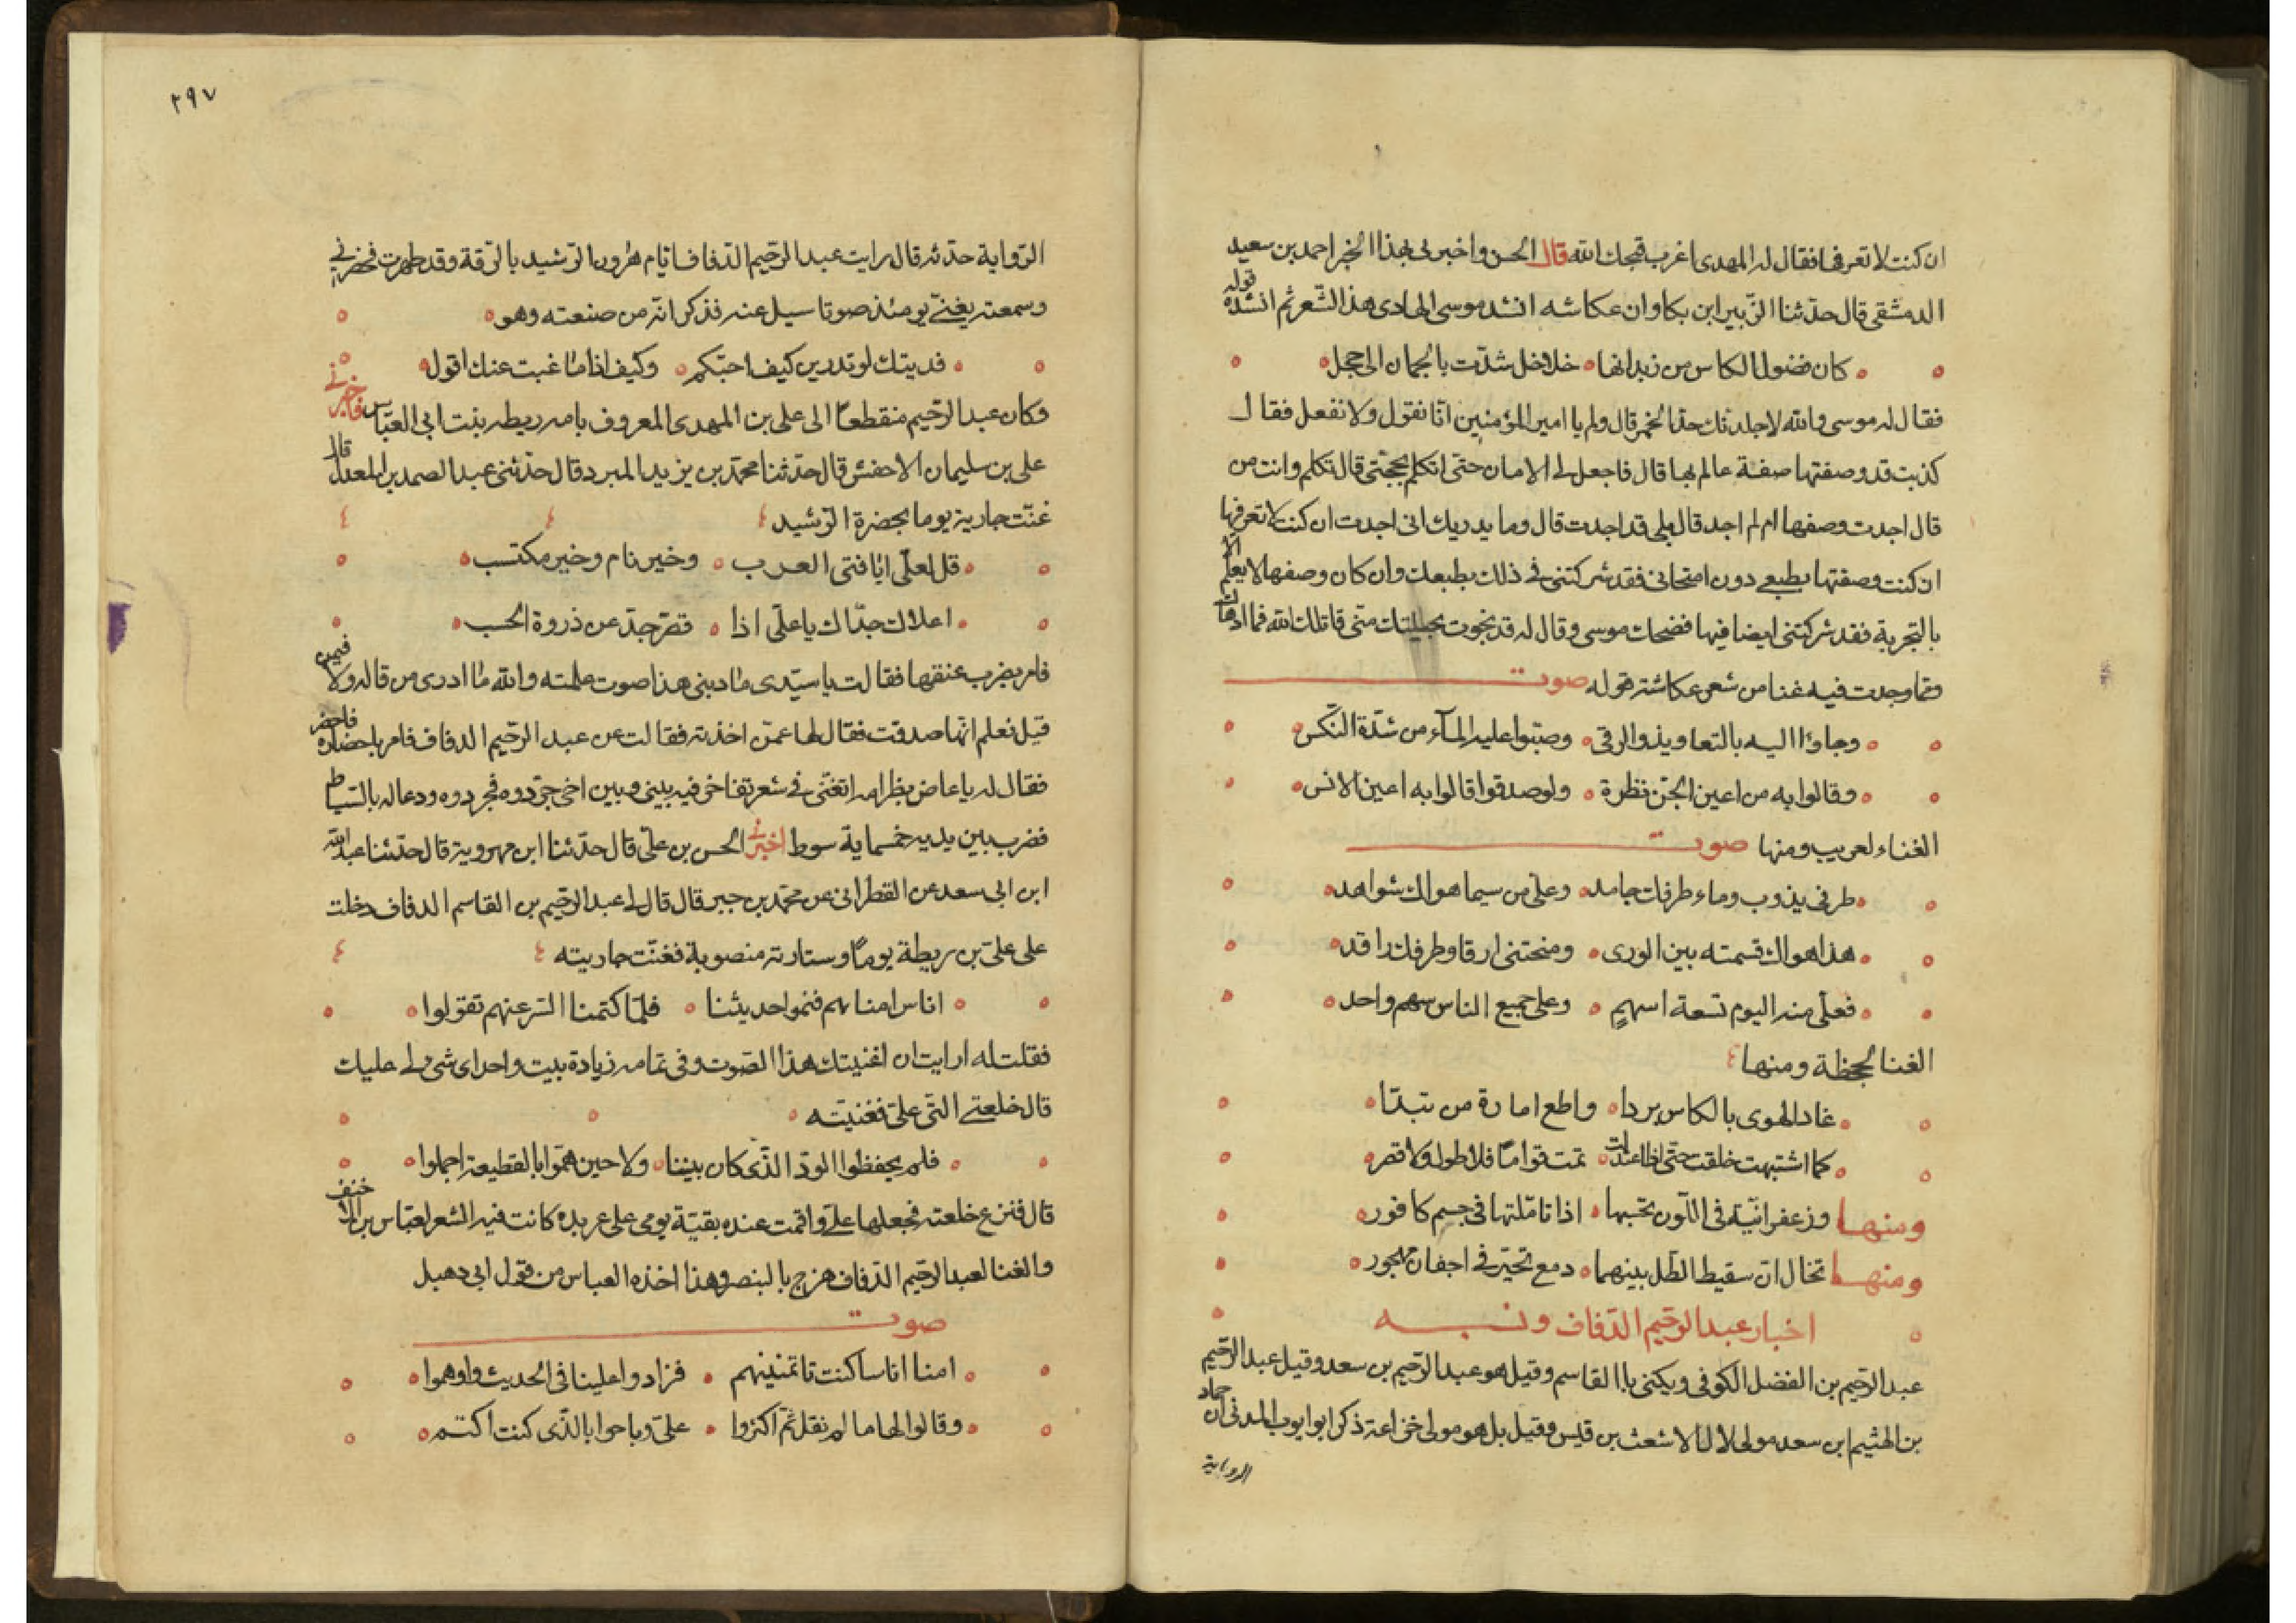 ان كنت لا تعرفها فقال له المهدى اغرب قبحك الله قال الحسن واخبرنى بهذا الخبر احمد بن سعيد
الدمشقى قال حدثنا الزّبير ابن بكار وان عكاشه انشد موسى الهادى هذا الشّعر ثم انشده قوله
كان فضول الكاس من زبدانها خلاخل شدّت بالجمان الى حجل
فقال له موسى والله لاجلدنك حدّ الخمر قال ولم يا امير المؤمنين انّا نقول ولا نفعل فقال
كذبت قد وصفتها صفة عالم بها قال فاجعل لى الامان حتى اتكلم بحجتى قال تكلم وانت من
قال اجدت وصفها ام لم اجد قال بلى قد اجدت قال وما يدريك انى اجدت ان كنت لا تعرفها
ان كنت وصفتها بطبعى دون امتحانى فقد شركتنى فى ذلك بطبعك وان كان وصفها لا يعلم الا
بالتجربة فقد شركتنى ايضا فيها فضحك موسى وقال له قد نجوت بحيلتك منّى قاتلك الله فما ادهاك
وممّا وجدت فيه غنا من شعر عكاشة قوله صوت
وجاؤا اليه بالتعاويذ والرقى وصبّوا عليه المآء من شدّة النّكس
وقالوا به من اعين الجنّ نظرة ولو صدقوا قالوا به اعين الانس
الغناء لعريب ومنها صوت
طرفى يذوب وماء طرفك جامد وعلىّ من سيما هواك شواهد
هذا هواك قسمته بين الورى ومنحتنى ارقا وطرفك راقد
فعلىّ منه اليوم تسعة اسهمٍ وعلى جميع الناس سهم واحد
الغنا لجحظة ومنها
غاد الهوى بالكاس بردا واطع امارة من تبدّا
كما اشتهت خلقت حتى اذا اعتدلت تمت قواما فلا طول ولا قصر
ومنها وزعفرانيّة فى اللّون تحسبها اذا تامّلتها فى جسم كافور
ومنها تخال انّ سقيط الطّل بينهما دمع تحيّر فى اجفان مهجور
اخبار عبد الرّحيم الدّفاف ونسبه
عبد الرّحيم بن الفضل الكوفى ويكنى ابا القاسم وقيل هو عبد الرّحيم بن سعد وقيل عبد الرّحيم
بن الهثيم ابن سعد مولى لال الاشعث بن قيس وقيل بل هو مولى خزاعة ذكر ابو ايوب المدنى ان حماد
الرواية
٢٩٧
الرّواية حدّثه قال رايت عبد الرّحيم الدّفاف ايّام هرون الرّشيد بالرّقة وقد ظهرت
وسمعته يغنّى يومئذ صوتا سيل عنه فذكر انّه من صنعته وهو
فديتك لو تدرين كيف احبّكم وكيف اذا ما غبت عنك اقول
وكان عبد الرّحيم منقطعًا الى على بن المهدى المعروف بامه ريطه بنت ابى العبّاس فاخبرنى
على بن سليمان الاخفش قال حدّثنا محمّد بن يزيد المبرد قال حدّثنى عبد الصمد بن المعدل قال
غنّت جارية يوما بحضرة الرّشيد
قل لعلّى ايا فتى العرب وخير نام وخير مكتسب
اعلاك جدّاك يا علّى اذا قصّر جدّ عن ذروة الحسب
فامر بضرب عنقها فقالت يا سيّدى ما ذنبى هذا صوت علمته والله ما ادرى من قاله ولا فيمن
قيل فعلم انّها صدقت فقال لها عمّن اخذته فقالت عن عبد الرّحيم الدفاف فامر باحضاره فاحضر
فقال له يا عاض بظر امه اتغنّى فى شعر تفاخر فيه بينى وبين اخى جرّدوه فجردوه ودعا له بالسّياط
فضرب بين يديه خمساية سوط اخبرنى الحسن بن علىّ قال حدّثنا ابن مهروية قال حدّثنا عبد الله
ابن ابى سعد عن القطرانى عن محمّد بن جبر قال قال لى عبد الرّحيم بن القاسم الدفاف دخلت
على علىّ بن ريطة يومًا وستارته منصوبة فغنّت جاريته
اناس امناهم فنموا حديثنا فلمّا كتمنا السّر عنهم تقولوا
فقلت له ارايت ان اغنيتك هذا الصّوت وفى تمامه زيادة بيت واحد اى شى لى عليك
قال خلعتى الّتى علىّ فغنيته
فلم يحفظوا الودّ الّذى كان بيننا ولا حين همّوا بالقطيعة اجملوا
قال فنزع خلعته فجعلها علىّ واقمت عنده بقيّة يومى على عربده كانت فيه الشعر لعبّاس بن الاحنف
والغنا لعبد الرّحيم الدّفاف هزج بالبنصر وهذا اخذه العباس من قول ابى دهبل
صوت
امنا اناسا كنت تاتمنينهم فزادوا علينا فى الحديث واوهموا
وقالوا لها ما لم نقل ثمّ اكثروا علىّ وباحوا بالّذى كنت اكتم